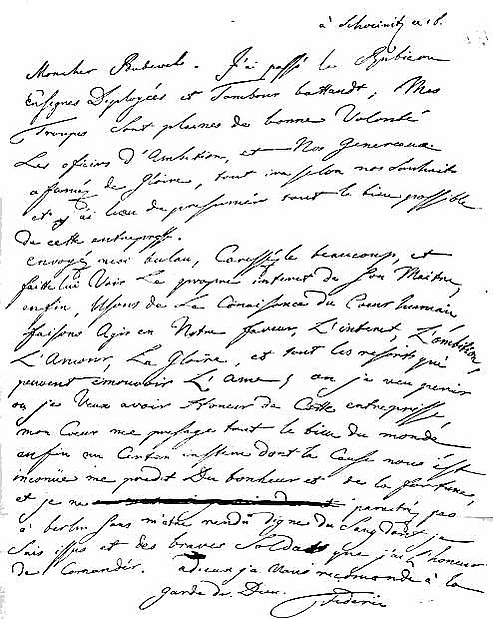 à Schweinitz ce 18.
Moncher Podewels. J'ai passé le Rubicon
Enseignes Deployées et Tambour battandt; Mes
Troupes Sont pleines de bonne Volonté
Les oficiers d'Ambition, et Nos Genereaux
afamés de Gloire, tout ira selon nos Souhaits
et j'ai lieu de presumér tout le bien possible
de cette entreprise.
envoyé moi bulau, Caressé le beaucoup, et
faitte lui Voir Le propre interet de Son Maitre,
enfin, Usons de La Conaissance du Coeur humain
faisons Agir en Notre faveur, L'interet, L'ambition,
L'Amour, La Gloire, et tout les ressorts qui
peuvent émouvoir L'Ame; ou je veu perir
ou je Veux avoir Honeur de Cette entreprise
mon Coeur me presage tout le bien du monde
enfin un Certen instinc dont la Cause nous est
inconüe me predit Du bonheur et de la fortune,
et je ne paroitré pas
à berlin Sans m'être rendü Digne du Sang dont je
Sais issus et des braves Soldats que j'ai l'honeur
de Comander. adieux je Vous recomande à la
garde de Dieu. Federic